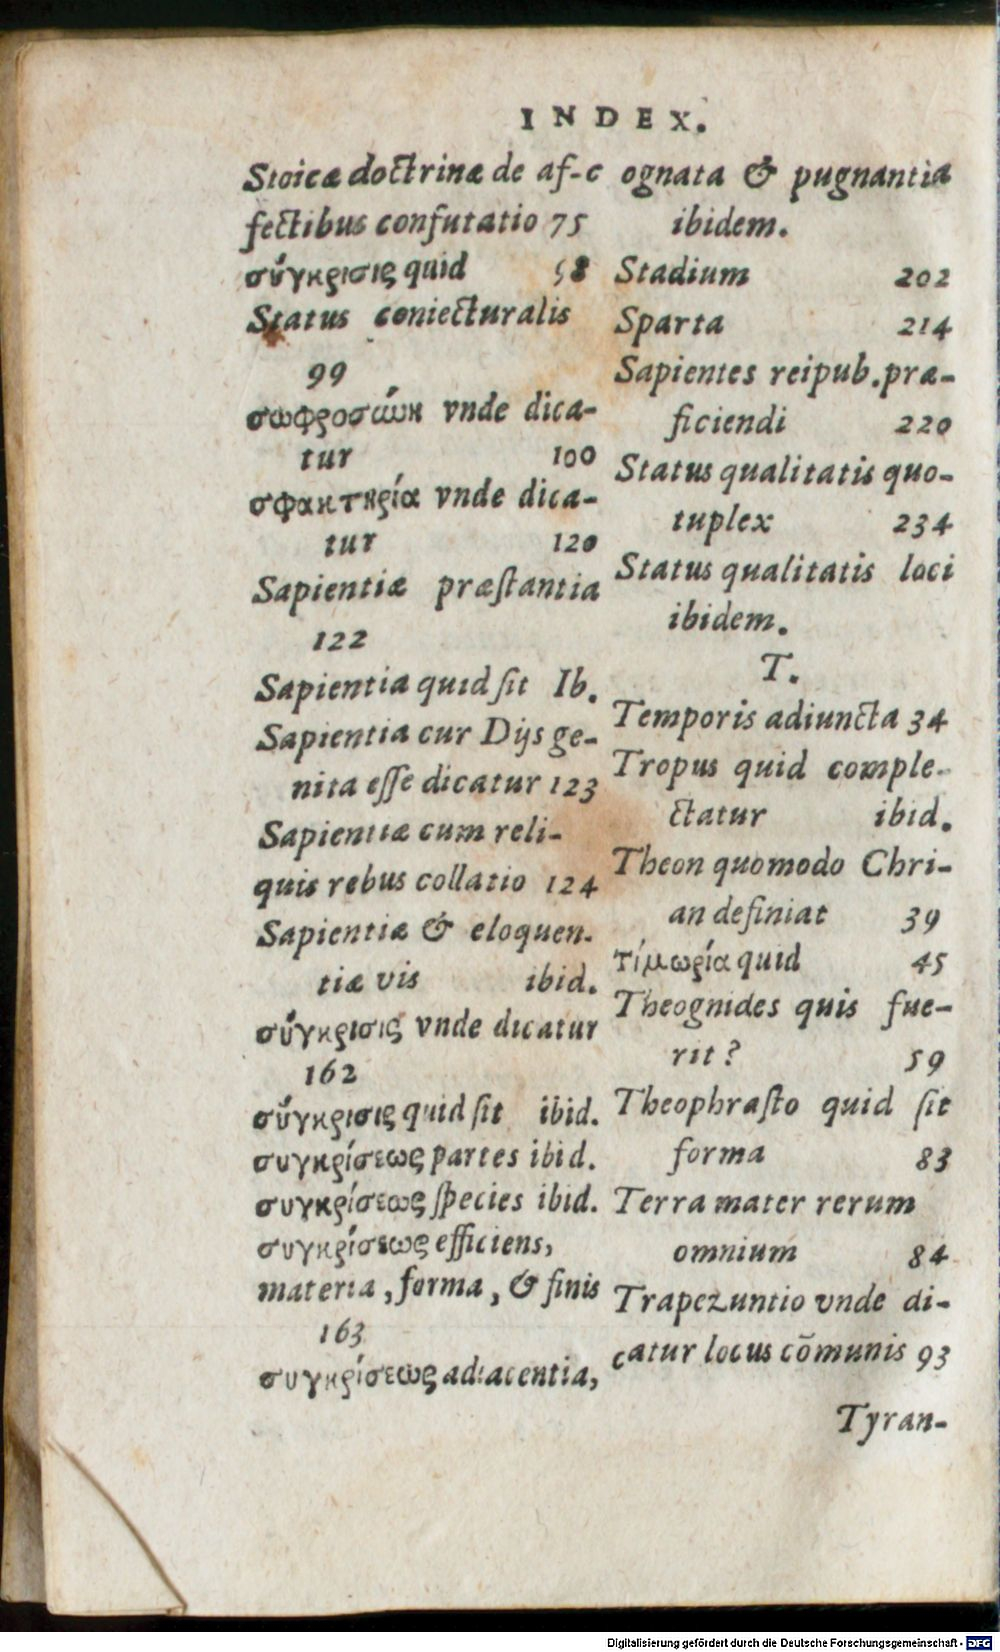 INDEX.
Stoicæ doctrinæ de af-
fectibus confutatio 75
σύγκρισις quid 58
Status coniecturalis
99
σωφροσύνη vnde dica-
tur 100
σφακτηρία vnde dica-
tur 120
Sapientiæ præſtantia
122
Sapientia quid ſit Ib.
Sapientia cur Dijs ge-
nita eſſe dicatur 123
Sapientiæ cum reli-
quis rebus collatio 124
Sapientiæ & eloquen-
tiæ vis ibid.
σύγκρισις vnde dicatur
162
σύγκρισις quid ſit ibid.
συγκρίσεως partes ibid.
συγκρίσεως ſpecies ibid.
συγκρίσεως efficiens,
materia, forma, & finis
163
συγκρίσεως adiacentia,
cognata & pugnantia
ibidem.
Stadium 202
Sparta 214
Sapientes reipub. præ-
ficiendi 220
Status qualitatis quo-
tuplex 234
Status qualitatis loci
ibidem.
T.
Temporis adiuncta 34
Tropus quid comple-
ctatur ibid.
Theon quomodo Chri-
an definiat 39
τίμωρία quid 45
Theognides quis fue-
rit? 59
Theophraſto quid ſit
forma 83
Terra mater rerum
omnium 84
Trapezuntio vnde di-
catur locus cōmunis 93
Tyran-
Digitalisierung gefördert durch die Deutsche Forschungsgemeinschaft - DFG